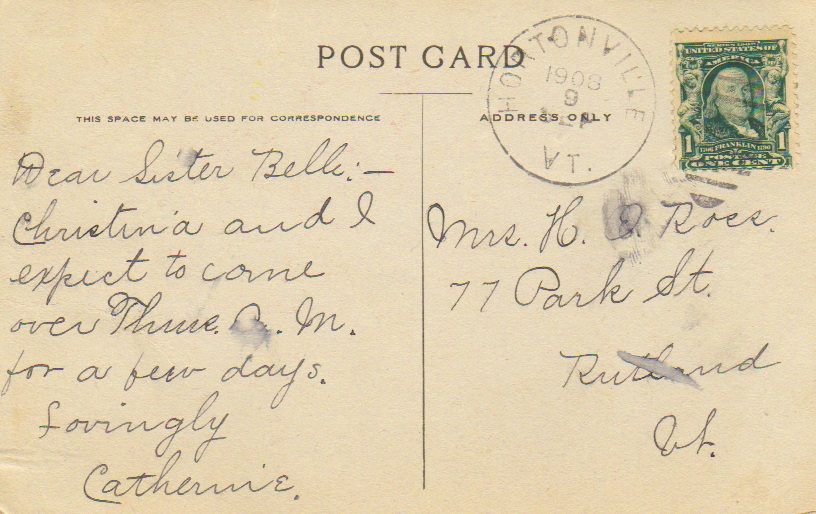 POST CARD
THIS SPACE MAY BE USED FOR CORRESPONDENCE
ADDRESS ONLY
HORTONVILLE
1908
9
VT.
SERIES 1902
UNITED STATES OF
AMERICA
1 1706 FRANKLIN 1790 1
POSTAGE
ONE CENT
Dear Sister Belle:—
Christina and I
expect to come
over Thur. A. M.
for a few days.
Lovingly
Catherine.
Mrs. H. Ross.
77 Park St.
Rutland
Vt.